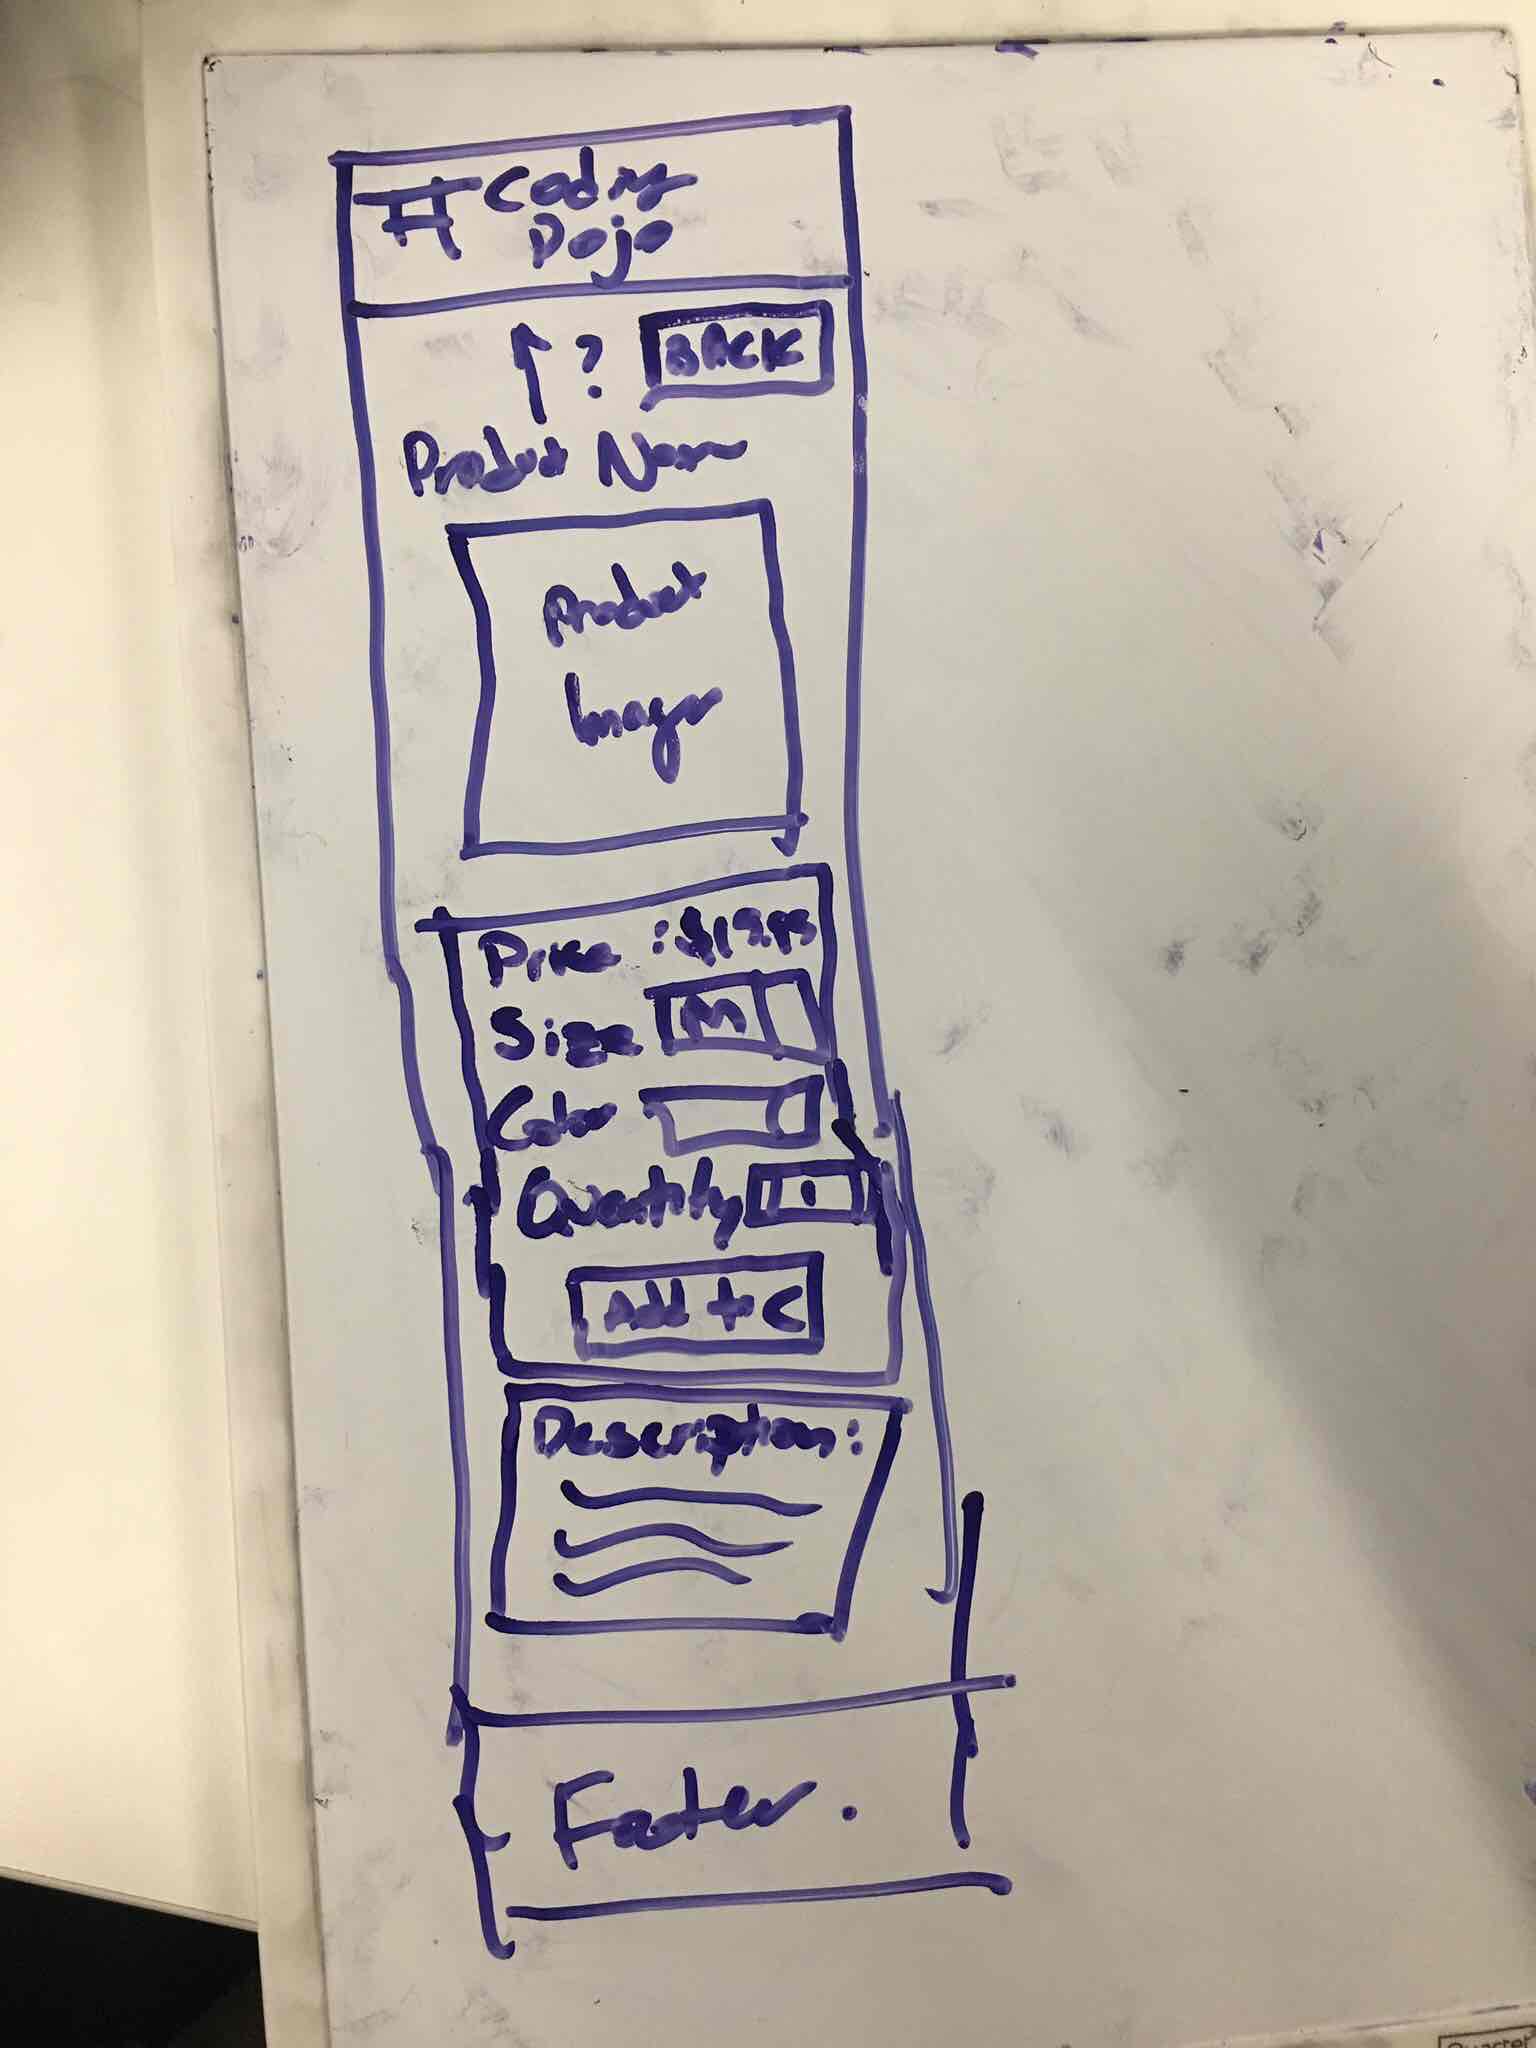 Coding
Dojo
? BACK
Product Name
Product
Image
Price : $19.95
Size M
Color
Quantity 1
Add to C
Description:
Footer.